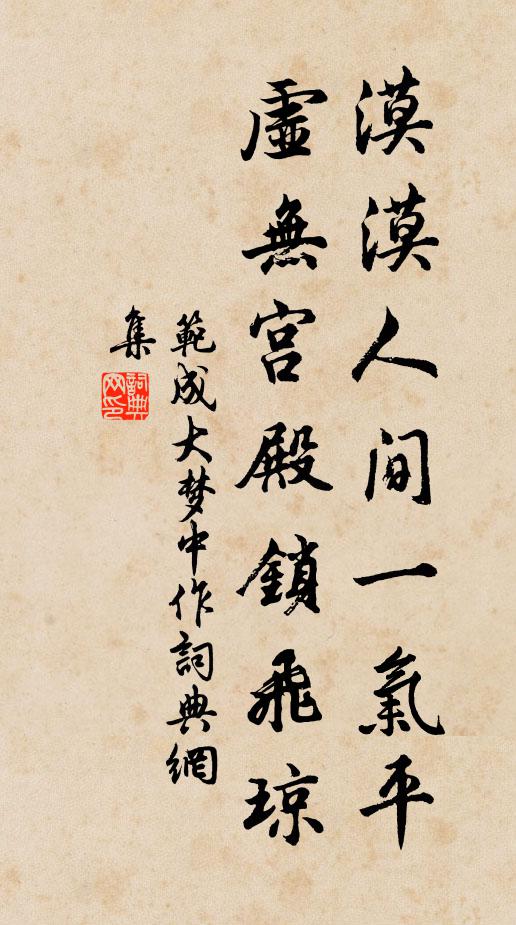 漠漠人间一氣平
虛無宮殿鎖飛瓊
範成大梦中作詞典網
集
詞典
网印